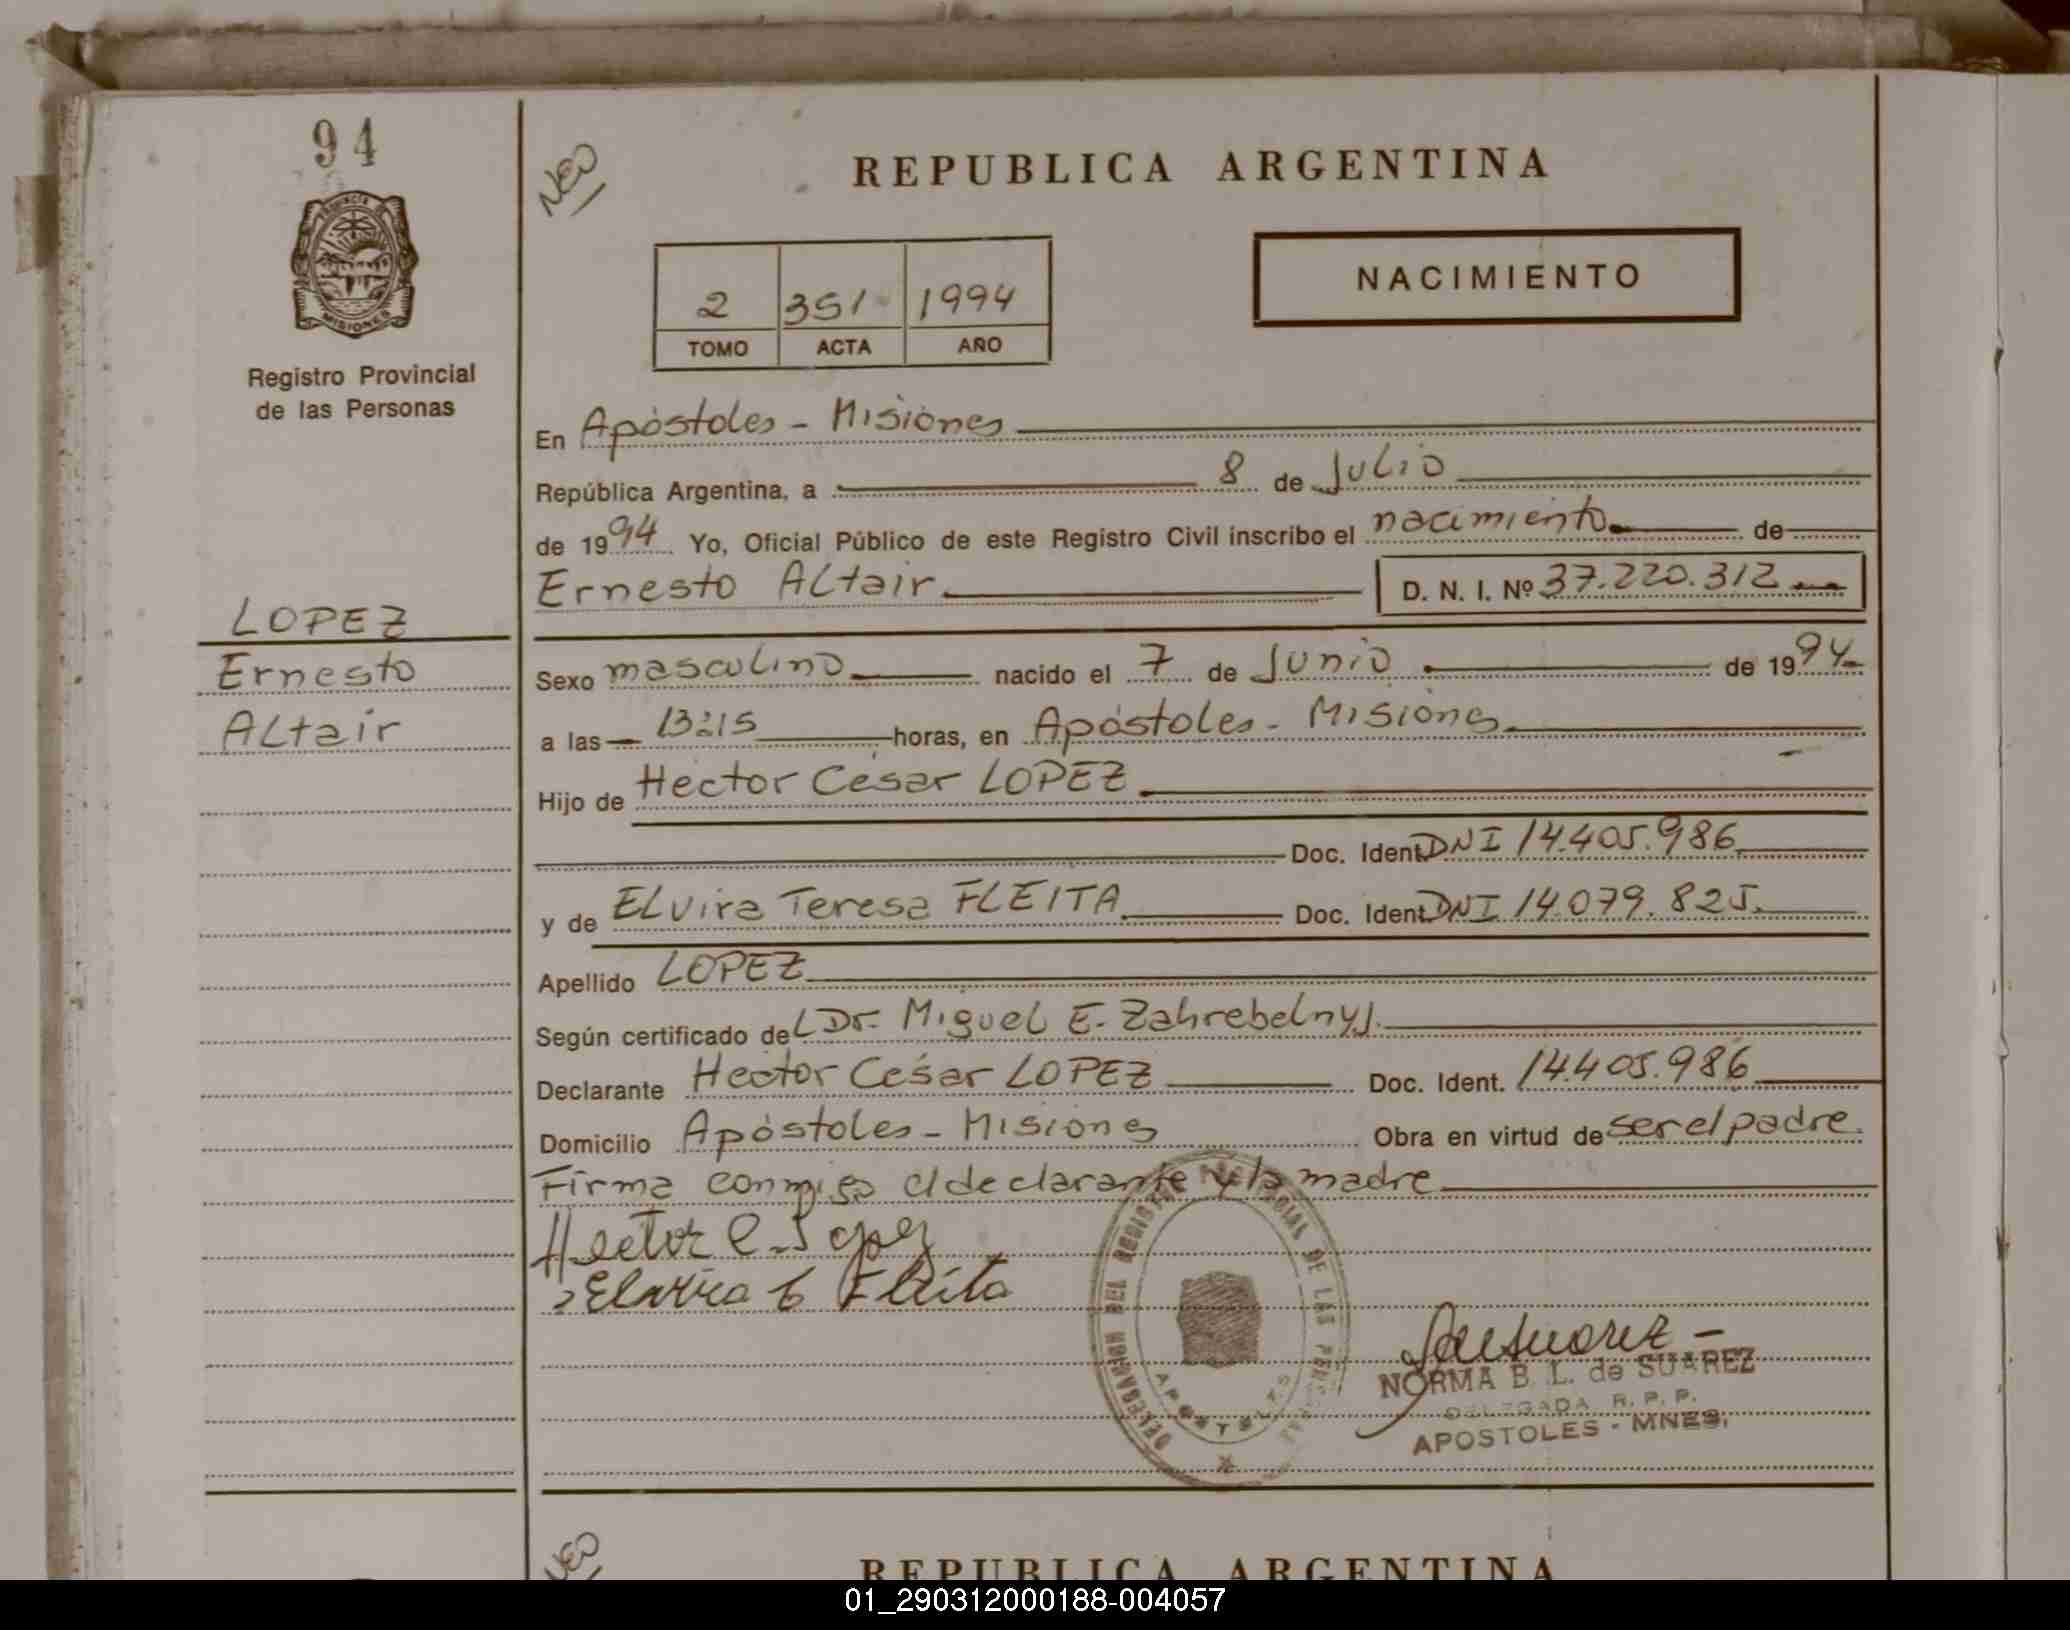 94
NEO
REPUBLICA ARGENTINA
PROVINCIA DE
MISIONES
NACIMIENTO
2 351 1994
TOMO ACTA AÑO
Registro Provincial
de las Personas
En Apóstoles - Misiones
República Argentina, a 8 de Julio
de 1994 Yo, Oficial Público de este Registro Civil inscribo el nacimiento de
Ernesto Altair D. N. I. Nº 37.220.312
LOPEZ
Ernesto
Altair
Sexo masculino nacido el 7 de Junio de 1994
a las 13:15 horas, en Apóstoles - Misiones
Hijo de Hector César LOPEZ
Doc. Ident. DNI 14.405.986
y de Elvira Teresa FLEITA Doc. Ident. DNI 14.079.825.
Apellido LOPEZ
Según certificado del Dr. Miguel E. Zahrebelnyj.
Declarante Hector César LOPEZ Doc. Ident. 14.405.986
Domicilio Apóstoles - Misiones Obra en virtud de ser el padre.
Firma conmigo el declarante y la madre
Hector C. Lopez
Elvira t Fleita
DELEGACION DEL REGISTRO PROVINCIAL DE LAS PERSONAS
APOSTOLES
NORMA B. L. de SUAREZ
DELEGADA R. P. P.
APOSTOLES - MNES.
NEO
REPUBLICA ARGENTINA
01_290312000188-004057